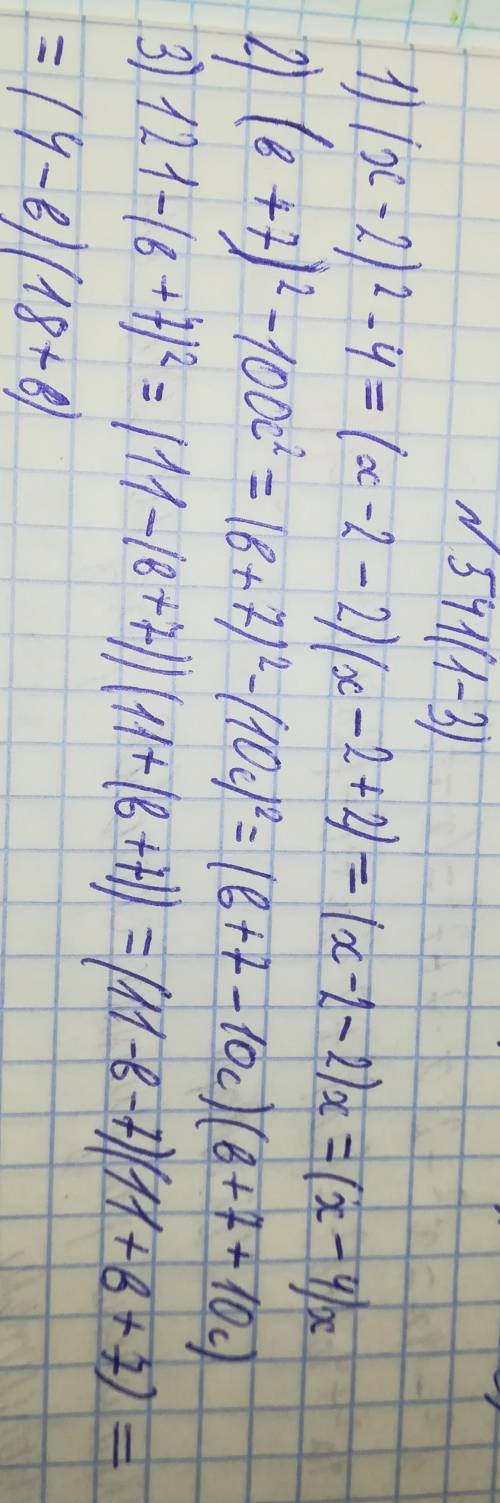 № 541(1-3)
1) (x-2)² - 4 = (x-2-2)(x-2+2) = (x-2-2)x = (x-4)x
2) (в+7)² - 100с² = (в+7)² - (10с)² = (в+7-10с)(в+7+10с)
3) 121 - (в+7)² = (11-(в+7))(11+(в+7)) = (11-в-7)(11+в+7) =
= (4-в)(18+в)